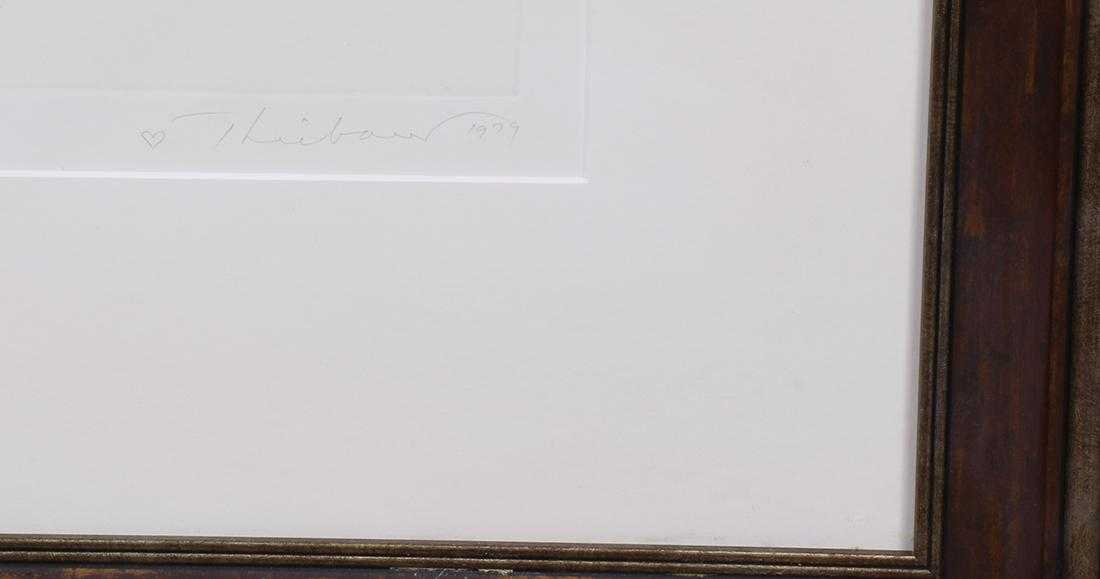 ♡ Thiebaud 1979